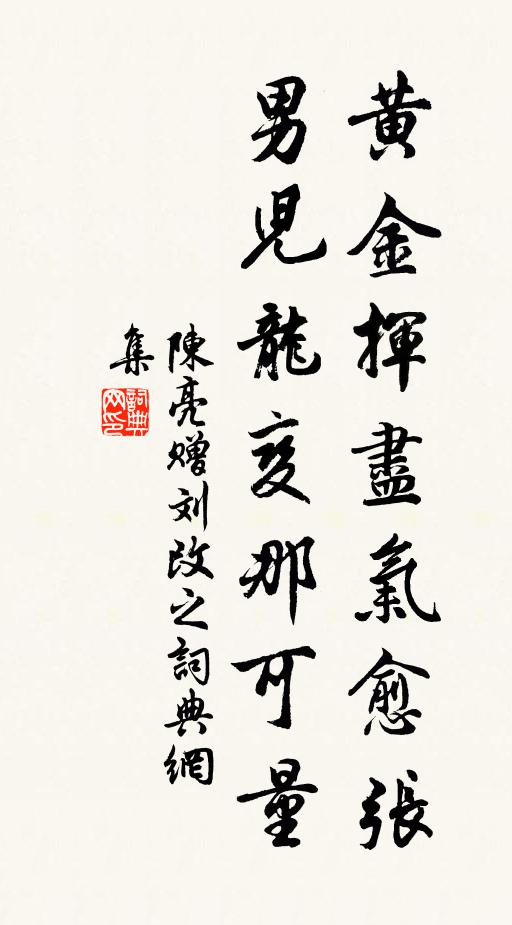 黃金揮盡氣愈張
男児龍変那可量
陳亮贈刘改之詞典網
集
詞典
网印